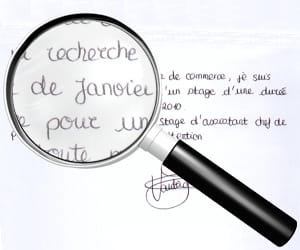 recherche
de Janvier
pour un
toute
de commerce, je suis
un stage d'une durée
2010.
stage d'assistant chef de
ttention